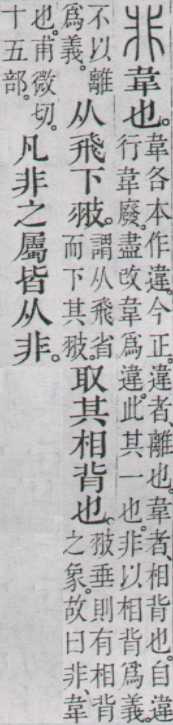 非韋也。韋各本作違。今正。違者、離也。韋者、相背也。自違
行韋廢。盡改韋爲違。此其一也。非以相背爲義。
不以離
爲義。
从飛下翄。
謂从飛省
而下其翄。
取其相背也。
翄垂則有相背
之象。故曰非、韋
也。甫微切。
十五部。
凡非之屬皆从非。